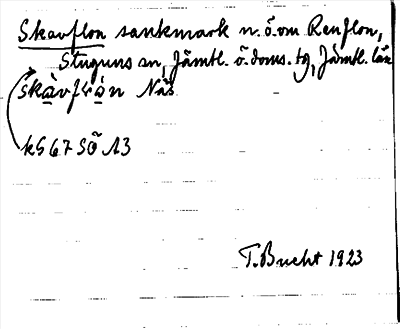 Skavflon sankmark n.ö. om Renflon,
Stuguns sn, Jämtl. ö. doms. tg, Jämtl. län
Näs
k 5 6 7 S Ö A 3
T. Bucht 1923